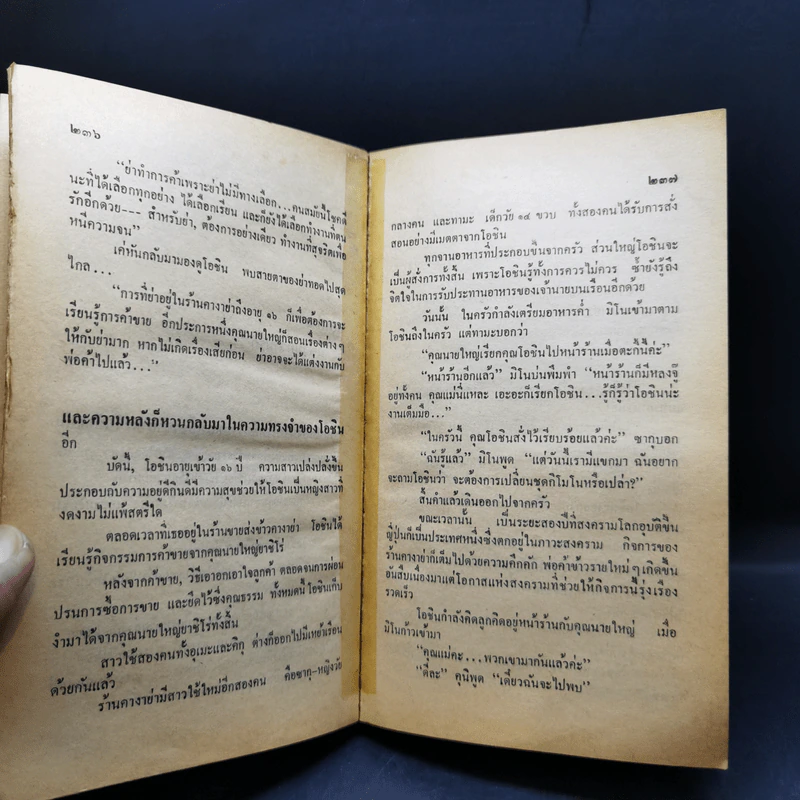 ๒๓๖
“ย่าทำการค้าเพราะย่าไม่มีทางเลือก...คนสมัยนี้โชคดี
นะที่ได้เลือกทุกอย่าง ได้เลือกเรียน และก็ยังได้เลือกทำงานที่ตน
รักอีกด้วย--- สำหรับย่า, ต้องการอย่างเดียว ทำงานที่สุจริตเพื่อ
หนีความจน”
เค่หันกลับมามองดูโอชิน พบสายตาของย่าทอดไปสุด
ไกล...
“การที่ย่าอยู่ในร้านคางาย่าถึงอายุ ๑๖ ก็เพื่อต้องการจะ
เรียนรู้การค้าขาย อีกประการหนึ่งคุณนายใหญ่ก็สอนเรื่องต่างๆ
ให้กับย่ามาก หากไม่เกิดเรื่องเสียก่อน ย่าอาจจะได้แต่งงานกับ
พ่อค้าไปแล้ว...”
และความหลังก็หวนกลับมาในความทรงจำของโอชิน
อีก
บัดนี้, โอชินอายุเข้าวัย ๑๖ ปี ความสาวเปล่งปลั่งขึ้น
ประกอบกับความอยู่ดีกินดีมีความสุขช่วยให้โอชินเป็นหญิงสาวที่
งดงามไม่แพ้สตรีใด
ตลอดเวลาที่เธออยู่ในร้านขายส่งข้าวคางาย่า โอชินได้
เรียนรู้กิจกรรมการค้าขายจากคุณนายใหญ่ยาชิโร่
หลังจากค้าขาย, วิธีเอาอกเอาใจลูกค้า ตลอดจนการผ่อน
ปรนการซื้อการขาย และยึดไว้ซึ่งคุณธรรม ทั้งหมดนี้โอชินเก็บ
งำมาได้จากคุณนายใหญ่ยาชิโร่ทั้งสิ้น
สาวใช้สองคนทั้งอุเมะและคิกุ ต่างก็ออกไปมีเหย้าเรือน
ด้วยกันแล้ว
ร้านคางาย่ามีสาวใช้ใหม่อีกสองคน คือซากุ-หญิงวัย
๒๓๗
กลางคน และทามะ เด็กวัย ๑๔ ขวบ ทั้งสองคนได้รับการสั่ง
สอนอย่างมีเมตตาจากโอชิน
ทุกจานอาหารที่ประกอบขึ้นจากครัว ส่วนใหญ่โอชินจะ
เป็นผู้สั่งการทั้งสิ้น เพราะโอชินรู้ทั้งการควรไม่ควร ซ้ำยังรู้ถึง
จิตใจในการรับประทานอาหารของเจ้านายบนเรือนอีกด้วย
วันนั้น ในครัวกำลังเตรียมอาหารค่ำ มิโนเข้ามาตาม
โอชินถึงในครัว แต่ทามะบอกว่า
“คุณนายใหญ่เรียกคุณโอชินไปหน้าร้านเมื่อตะกี้นี้ค่ะ”
“หน้าร้านอีกแล้ว” มิโนบ่นพึมพำ “หน้าร้านก็มีหลงจู๊
อยู่ทั้งคน คุณแม่นี่แหละ เอะอะก็เรียกโอชิน...รู้ก็รู้ว่าโอชินน่ะ
งานเต็มมือ...”
“ในครัวนี้ คุณโอชินสั่งไว้เรียบร้อยแล้วค่ะ” ซากุบอก
“ฉันรู้แล้ว” มิโนพูด “แต่วันนี้เรามีแขกมา ฉันอยาก
จะถามโอชินว่า จะต้องการเปลี่ยนชุดกิโมโนหรือเปล่า?”
สิ้นคำแล้วเดินออกไปจากครัว
ขณะเวลานั้น เป็นระยะสองปีที่สงครามโลกอุบัติขึ้น
ญี่ปุ่นก็เป็นประเทศหนึ่งซึ่งตกอยู่ในภาวะสงคราม กิจการของ
ร้านคางาย่าก็เต็มไปด้วยความคึกคัก พ่อค้าข้าวรายใหม่ๆเกิดขึ้น
อันสืบเนื่องมาแต่โอกาสแห่งสงครามที่ช่วยให้กิจการนี้รุ่งเรือง
รวดเร็ว
โอชินกำลังคิดลูกคิดอยู่หน้าร้านกับคุณนายใหญ่ เมื่อ
มิโนก้าวเข้ามา
“คุณแม่คะ...พวกเขามากันแล้วค่ะ”
“ดีละ” คุนิพูด “เดี๋ยวฉันจะไปพบ”